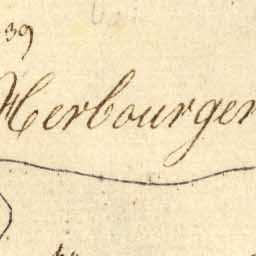 39
Herbourger